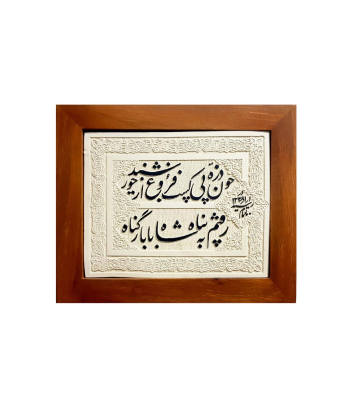 چون ذره پی کسب فروغ از خورشید
رفتم به پناه شاه با بار گناه